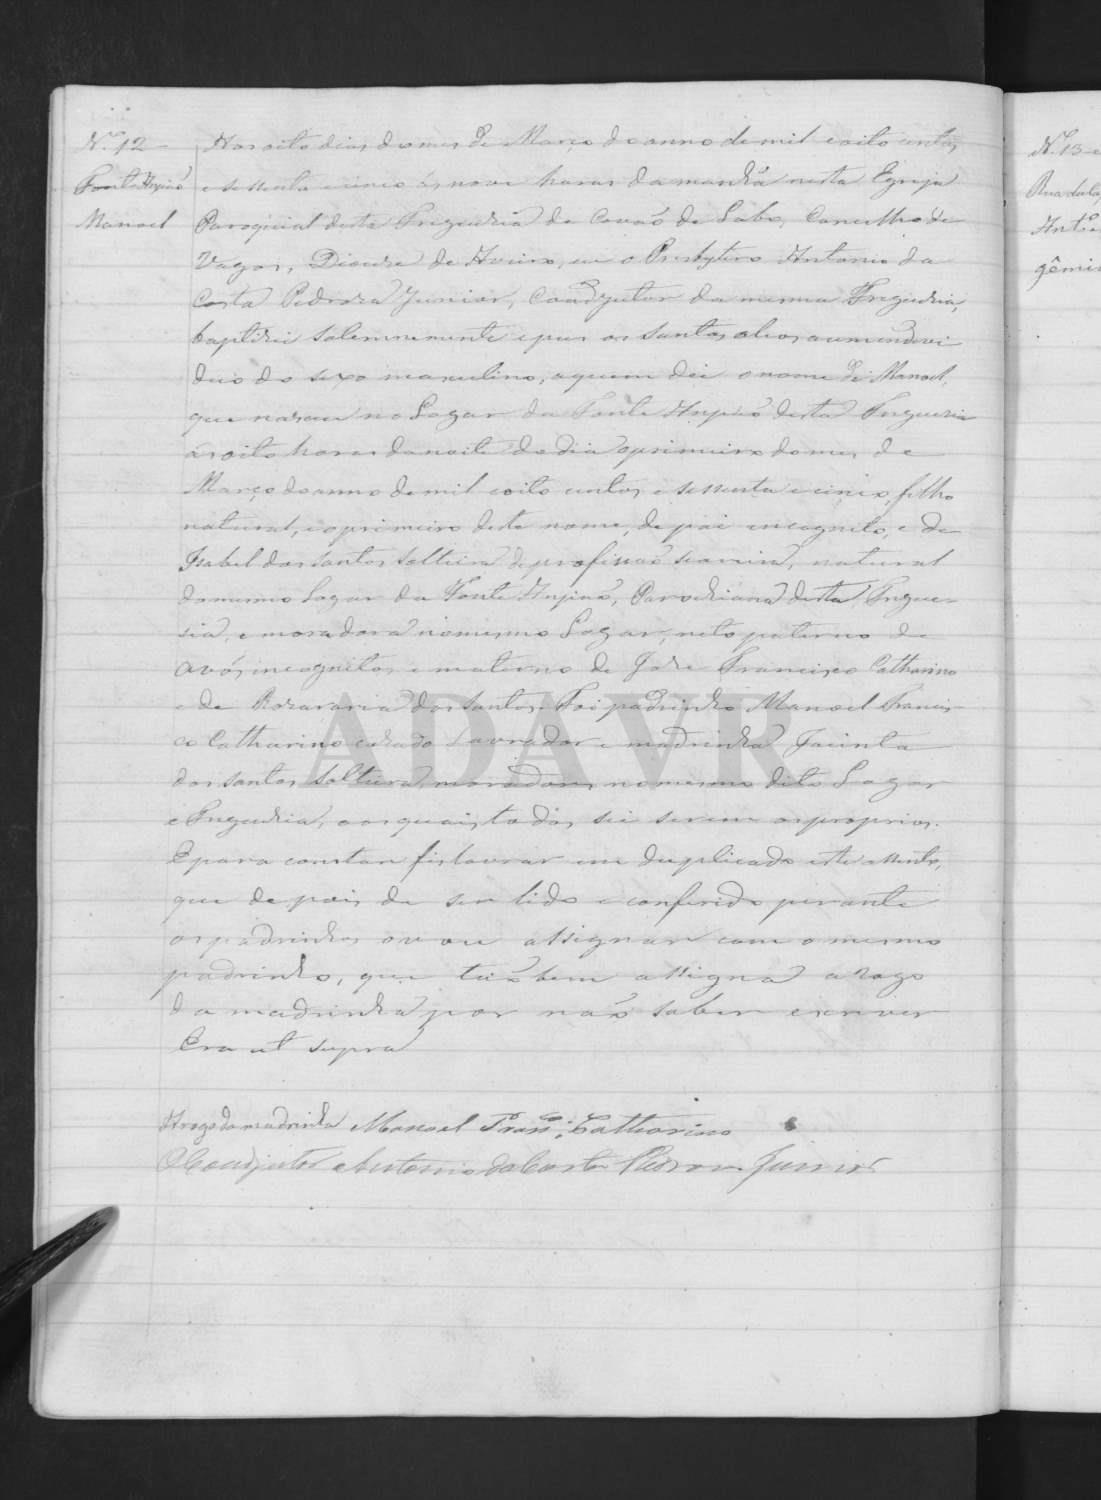 Nº 12
Fonte Angião
Manoel
Aos oito dias do mes de Março do anno de mil e oito centos
e sessenta e cinco ás nove horas da manhã nesta Egreja
Paroquial desta Freguesia de Covão do Lobo, Concelho de
Vagos, Diocese de Aveiro, eu o Presbytero Antonio da
Costa Pedrosa Junior, Coadjutor da mesma Freguesia,
baptisei solemnemente e pus os santos oleos a um indevi
duo do sexo masculino, a quem dei o nome de Manoel,
que nasceu no Logar da Fonte Angião desta Freguesia
ás oito horas da noite do dia o primeiro do mes de
Março do anno de mil e oito centos e sessenta e cinco, filho
natural, e o primeiro deste nome, de pai incognito, e de
Isabel dos santos solteira de profissão natural
do mesmo Logar da Fonte Angião, Parochiana desta Fregue-
sia, e moradora no mesmo Logar, neto paterno de
avós incognitos e materno de Jose Francisco Catharino
e de dos santos. Foi padrinho Manoel Francis-
co Catharino casado Lavrador e madrinha Jacinta
dos santos solteira, moradores no mesmo dito Logar
e Freguesia, os quais todos sei serem os proprios.
E para constar fis lavrar em duplicado este assento,
que depois de ser lido e conferido perante
os padrinhos assignar com o mesmo
padrinho, que tãobem assigna a rogo
da madrinha por não saber escrever
Era ut supra
A rogo da madrinha Manoel Franco Catharino
O Coadjutor Antonio da Costa Pedrosa Junior
ADAVR
Nº 13
Rua da
Anto
gêmi